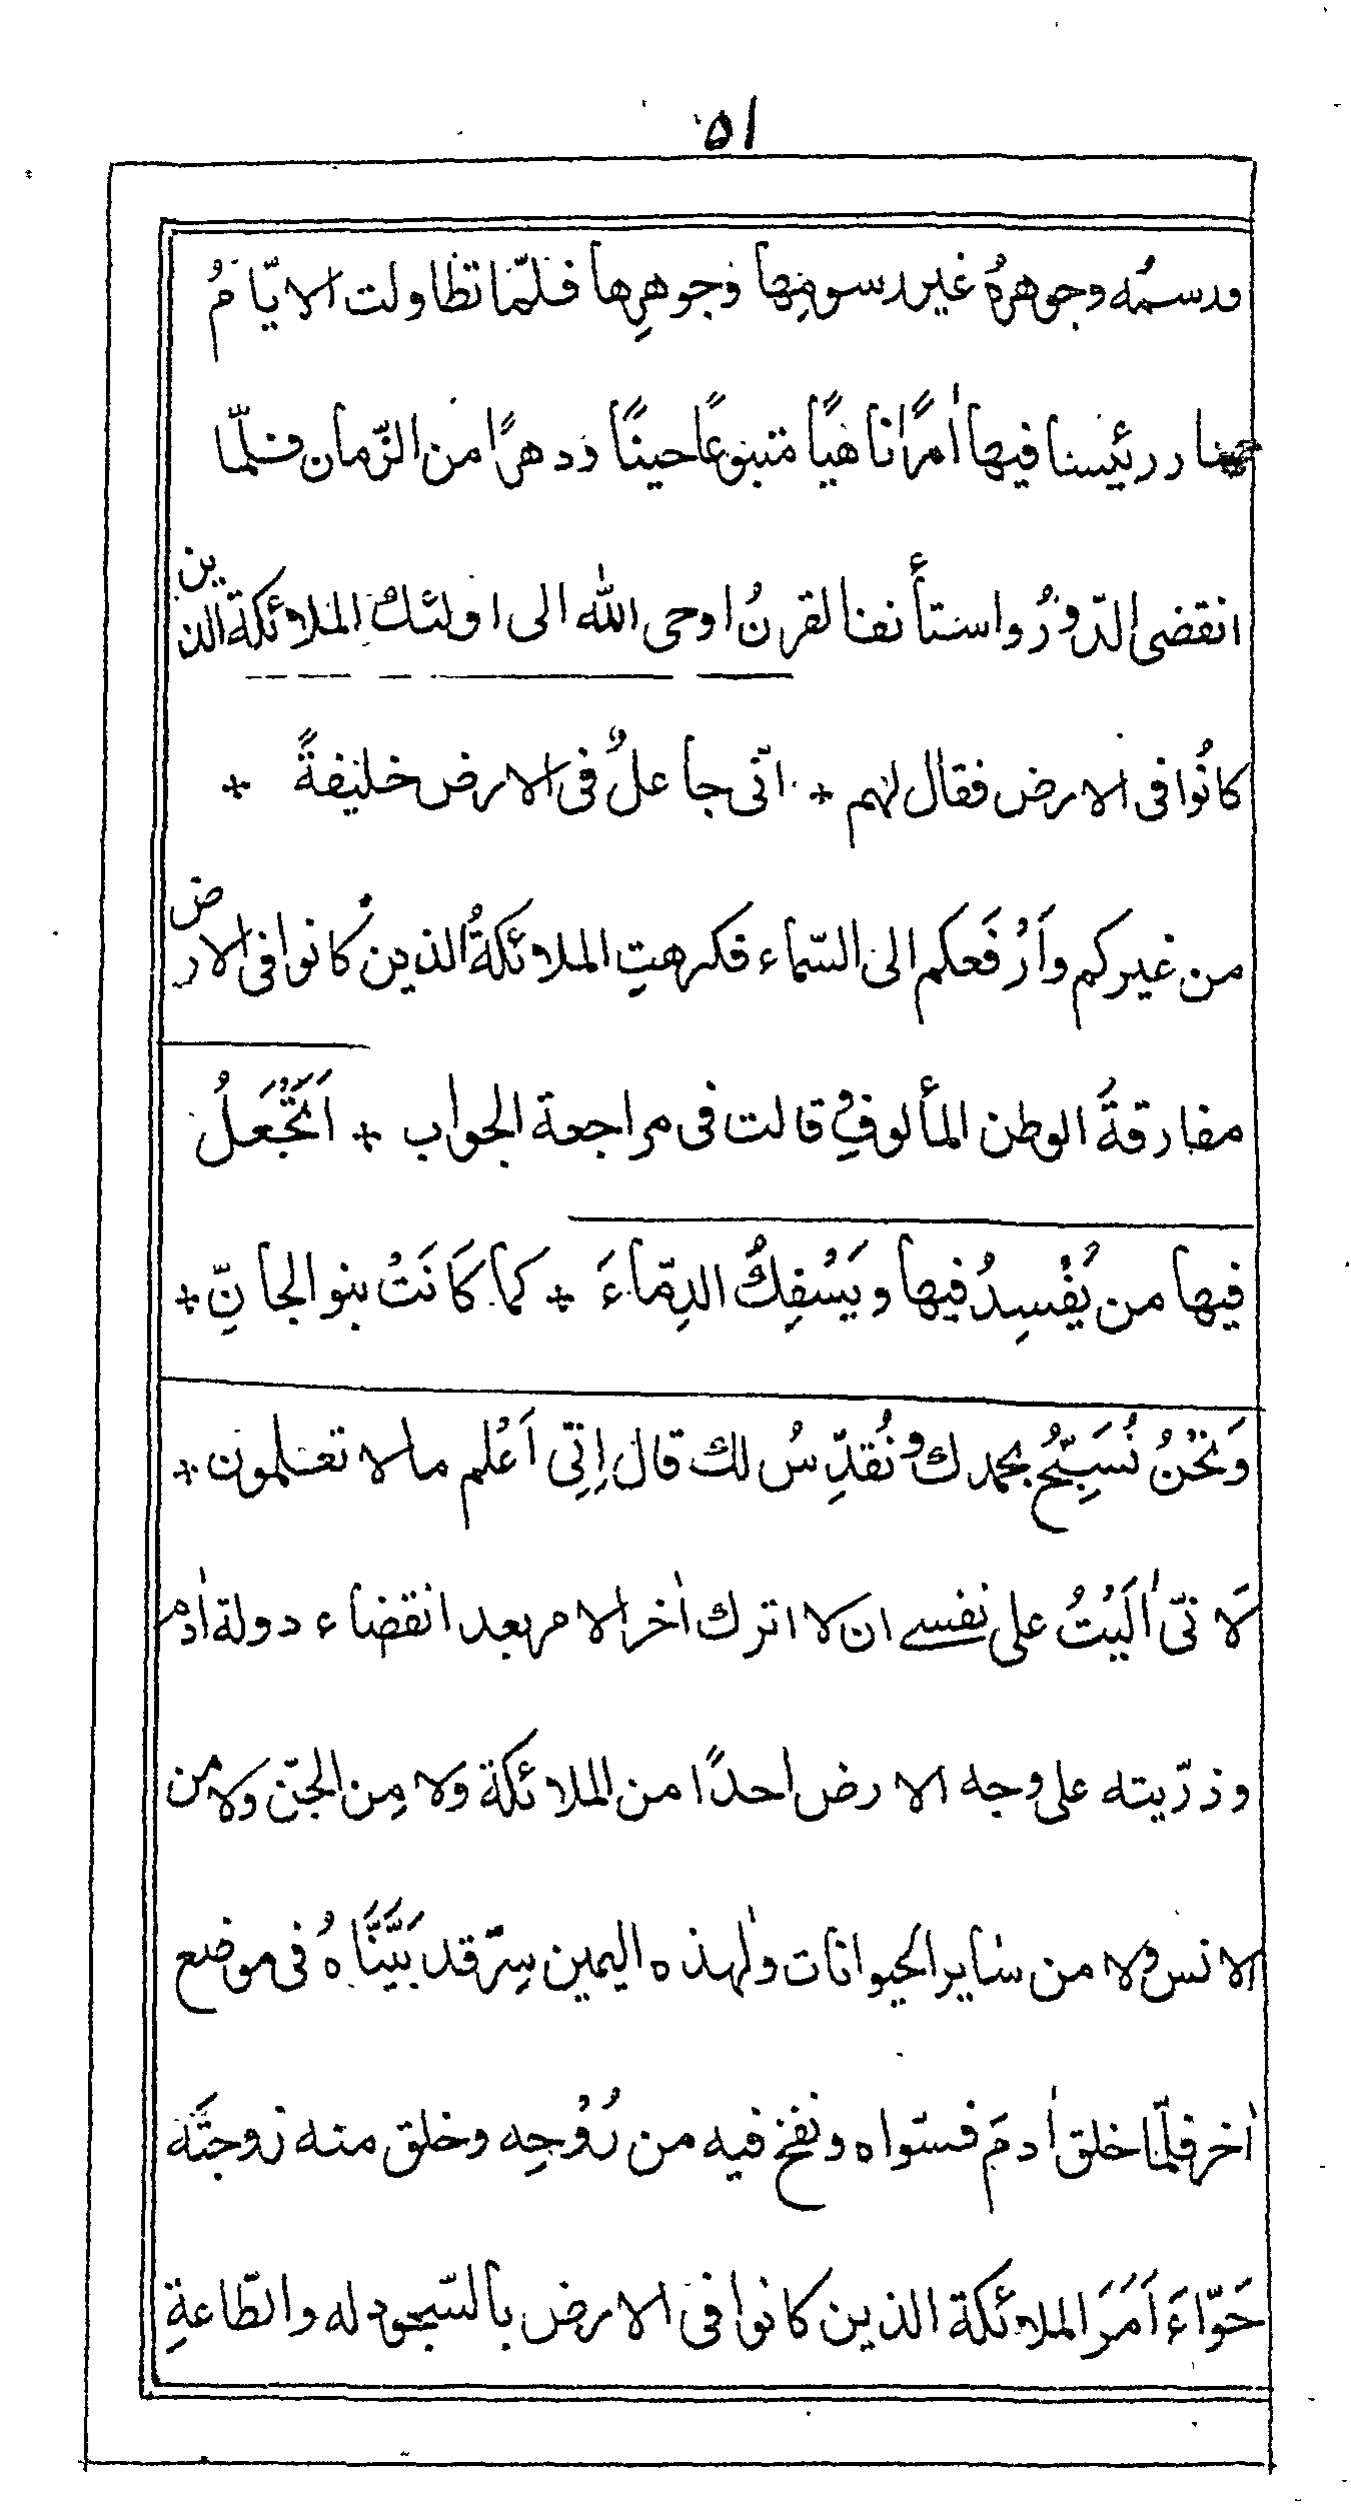 ١٥
ورسمُه وجوهرهُ غير رسومِها وجوهرِها فلمّا تطاولت الايّامُ
صار رئيسنا فيها اٰمرًا ناهيًا متبوعًا حينًا ودهرًا من الزّمان فلمّا
انقضى الدّورُ واستأنف القرنُ اوحى الله الى اولئك الملائكة الذين
كانُوا فى الارض فقال لهم + انّى جاعلٌ فى الارض خليفةً +
من غيركم واَرْفَعكم الى السّماء فكرهتِ الملائكةُ الذين كانوا فى الارض
مفارقةَ الوطن المألوفِ وقالت فى مراجعة الجواب + اَتَجْعَلُ
فيها من يُفْسِدُ فيها ويَسْفِكُ الدِمّاءَ + كما كَانَتْ بنو الجانِّ +
وَنَحْنُ نُسَبِّحُ بحمدك ونُقدِّسُ لك قال اِنّى اَعْلم ما لا تعلمون +
لَانّى اٰلَيْتُ على نفسے ان لا اترك اٰخر الامر بعد انقضاء دولة اٰدم
وذرّيته على وجه الارض احدًا من الملائكة وَلا مِن الجنّ وَلا من
الانس ولا من سٰاير الحيوانات ولهٰذه اليمين سِرّ قد بَيَّنَّاهُ فى موضع
اٰخر فلمّا خلق اٰدمَ فسوّاه ونفخ فيه من رُوْحِه وخلق منه زوجتَه
حَوّاءَ اَمَرَ الملائكة الذين كانوا فى الارض بالسّجود له والطّاعةِ